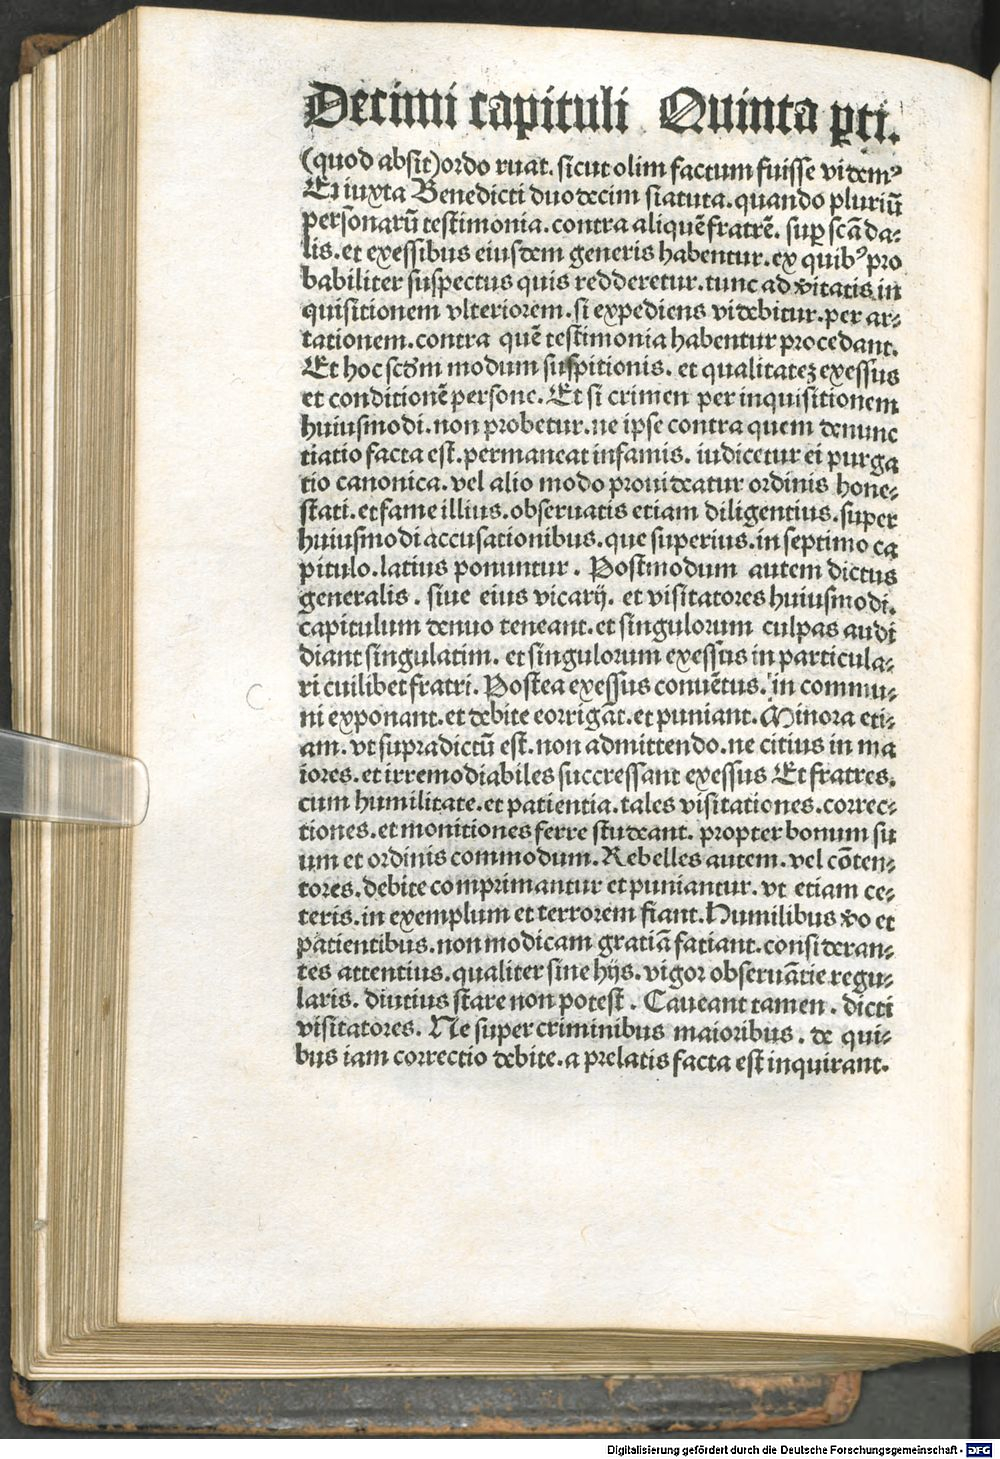 Decimi capituli Quinta ꝑti.
(quod absit)ordo ruat. sicut olim factum fuisse videmꝰ
Et iuxta Benedicti duodecim statuta. quando pluriū
persōnarū testimonia. contra aliquē fratrē. suꝑ scāda⸗
lis. et exessibus eiusdem generis habentur. ex quibꝰ pro
babiliter suspectus quis redderetur. tunc ad v̄itatis in
quisitionem vlteriorem. si expediens videbitur. per ar⸗
tationem. contra quē testimonia habentur procedant.
Et hoc scd̄m modum suspitionis. et qualitateꝫ exessus
et conditionē persone. Et si crimen per inquisitionem
huiusmodi. non probetur. ne ipse contra quem denunc
tiatio facta est. permaneat infamis. iudicetur ei purga
tio canonica. vel alio modo prouideatur ordinis hone⸗
stati. et fame illius. obseruatis etiam diligentius. super
huiusmodi accusationibus. que superius. in septimo ca
pitulo. latius ponuntur. Postmodum autem dictus
generalis. siue eius vicarij. et visitatores huiusmodi.
capitulum denuo teneant. et singulorum culpas audi
diant singulatim. et singulorum exessus in particula⸗
ri cuilibet fratri. Postea exessus conuētus. in commu⸗
ni exponant. et debite eorrigāt. et puniant. Minora eti⸗
am. vt supradictū est. non admittendo. ne citius in ma
iores. et irremodiabiles succressant exessus Et fratres.
cum humilitate. et patientia. tales visitationes. correc⸗
tiones. et monitiones ferre studeant. propter bonum su
um et ordinis commodum. Rebelles autem. vel cōten⸗
tores. debite comprimantur et puniantur. vt etiam ce⸗
teris. in exemplum et terrorem fiant. Humilibus v̄o et
patientibus. non modicam gratiā faciant. consideran⸗
tes attentius. qualiter sine hijs. vigor obseruātie regu⸗
laris. diutius stare non potest. Caueant tamen. dicti
visitatores. Ne super criminibus maioribus. de qui⸗
bus iam correctio debite. a prelatis facta est inquirant.
Digitalisierung gefördert durch die Deutsche Forschungsgemeinschaft - DFG